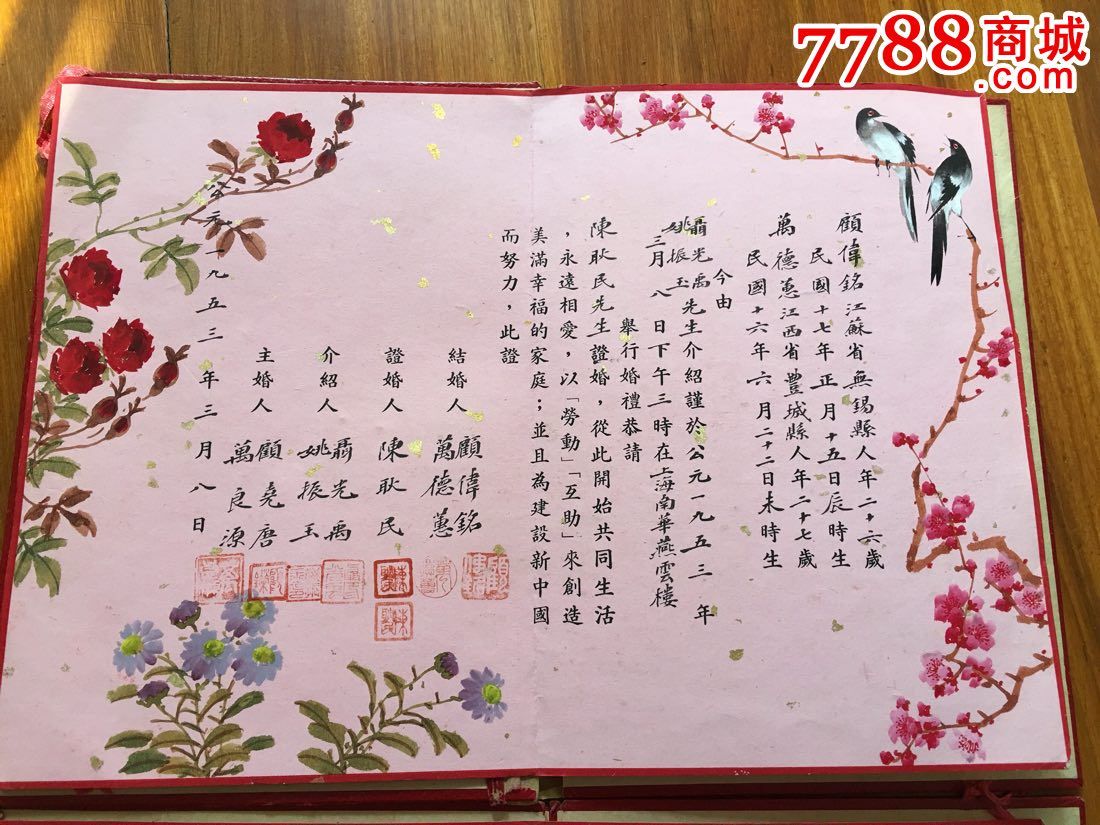 7788商城
.com
顧偉銘江蘇省無錫縣人年二十六歲
民國十七年正月十五日辰時生
萬德蕙江西省豐城縣人年二十七歲
民國十六年六月二十二日未時生
今由
聶光禹
姚振玉先生介紹謹於公元一九五三年
三月八日下午三時在上海南華燕雲樓
舉行婚禮恭請
陳耿民先生證婚，從此開始共同生活
，永遠相愛，以「勞動」「互助」來創造
美滿幸福的家庭；並且為建設新中國
而努力，此證
結婚人 顧偉銘
萬德蕙
證婚人 陳耿民
介紹人 聶光禹
姚振玉
主婚人 顧堯唐
萬良源
公元一九五三年三月八日